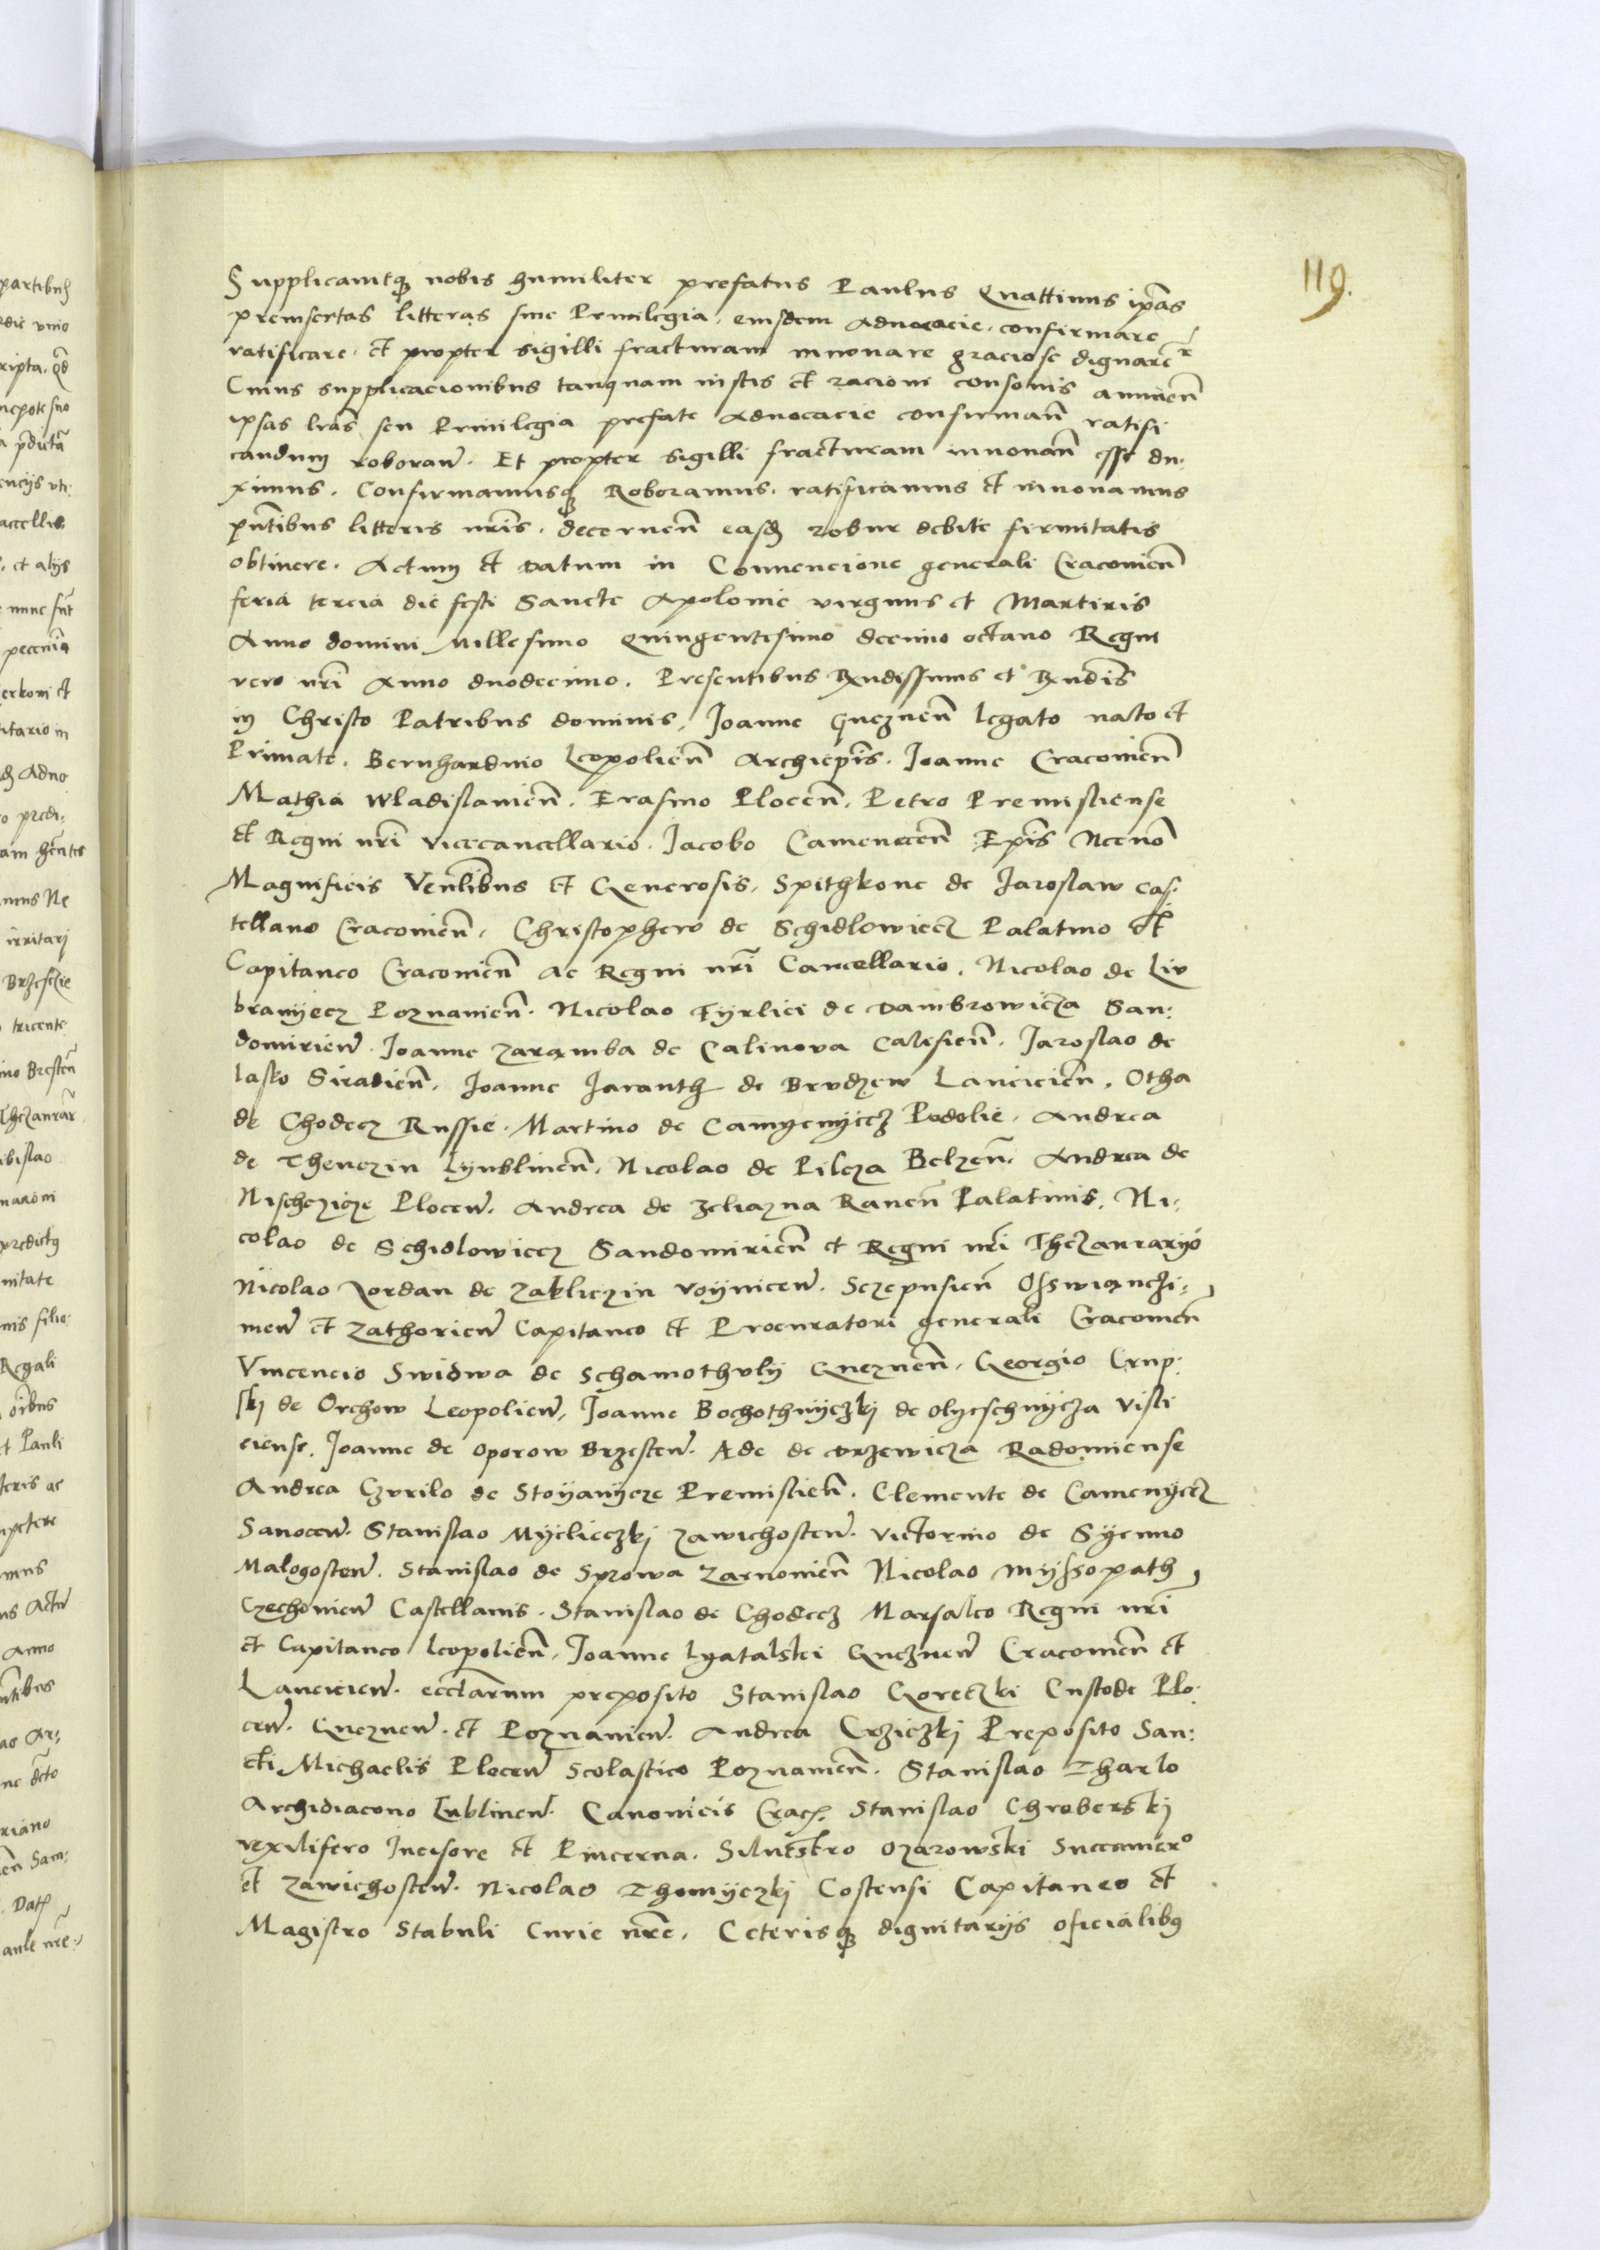 119.
Supplicauitq nobis humiliter prefatus Paulus Quattinus ipas
preinsertas litteras siue Priuilegia, eiusdem Aduocacie, confirmare
ratificare, et propter sigilli fracturam innouare graciose dignarer
Cuius supplicacionibus tanquam iustis et racioni consonis annuen
ipsas lras seu Priuilegia prefate Aduocacie confirman ratifi
candum roboran. Et propter sigilli fracturam innouan esse du-
ximus. Confirmamusq Roboramus, ratificamus et innouamus
pntibus litteris nris, decernen easd robur debite firmitatis
obtinere. Actum et Datum in Conuencione generali Cracouien
feria tercia die festi Sancte Apolonie virginis et Martiris
Anno domini Millesimo Quingentesimo decimo octauo Regni
vero nri Anno duodecimo. Presentibus Rndissimis et Rndis
in Christo Patribus dominis, Joanne Gneznen legato nato et
Primate. Bernhardino Leopolien Archiepis. Joanne Cracouien
Mathia Wladislauien. Erasmo Plocen. Petro Premisliense
et Regni nri vicecancellario. Jacobo Camenecen Epis Necno
Magnificis Venlibus et Generosis, Spithkone de Jaroslaw cas-
tellano Cracouien, Christophero de Schidlowiecz Palatino et
Capitaneo Cracouien ac Regni nri Cancellario, Nicolao de Lu
branyecz Poznanien. Nicolao Fyrlei de Dambrowicza San:
domirien. Joanne Zaramba de Calinova Calisien. Jaroslao de
lasko Siradien. Joanne Jaranth de Brudzew Lancicien. Otha
de Chodecz Russie. Martino de Camyenyecz Podolie. Andrea
de Thenczin Lynblinen. Nicolao de Pilcza Belzen. Andrea de
Nischczicze Plocen. Andrea de Zeliazna Rauen Palatinis. Ni-
colao de Schidlowiecz Sandomirien et Regni nri Thezaurario
Nicolao Jordan de Zakliczin Voynicen. Sczepusien Osswianczi-
men et Zathorien Capitaneo et Procuratori generali Cracouien
Vincencio Swidwa de Schamothuly Gneznen, Georgio Crup-
skj de Orchow Leopolien, Joanne Bochothnyczkj de olyeschnycza Visli
ciense. Joanne de Oporow Brzesten. Ade de Drzewicza Radomiense
Andrea Czurilo de Stoyanycze Premislien. Clemente de Camenyecz
Sanocen. Stanislao Myelieczkj Zawichosten. Victorino de Syenno
Malogosten. Stanislao de Sprowa Zarnouien Nicolao Myssopath
Czechouien Castellanis. Stanislao de Chodecz Marsalco Regni nri
et Capitaneo Leopolien, Joanne Lyatalski Gneznen Cracouien et
Lancicien. ecclarum preposito Stanislao Goreczki Custode Plo-
cen. Gneznen. et Poznanien. Andrea Crziczkj Preposito San:
cti Michaelis Plocen Scolastico Poznanien. Stanislao Tharlo
Archidiacono Lublinen. Canonicis Crac. Stanislao Chroberskj
vexilifero Incisore et Pincerna. Siluestro Ozarowski Succamero
et Zawichosten. Nicolao Thomyczkj Costensi Capitaneo et
Magistro Stabuli Curie nre, Ceterisq dignitariis oficialibus